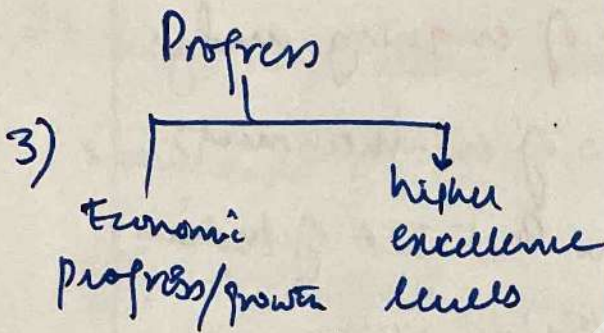 Progress
3)
Economic
progress/growth
higher
excellence
levels